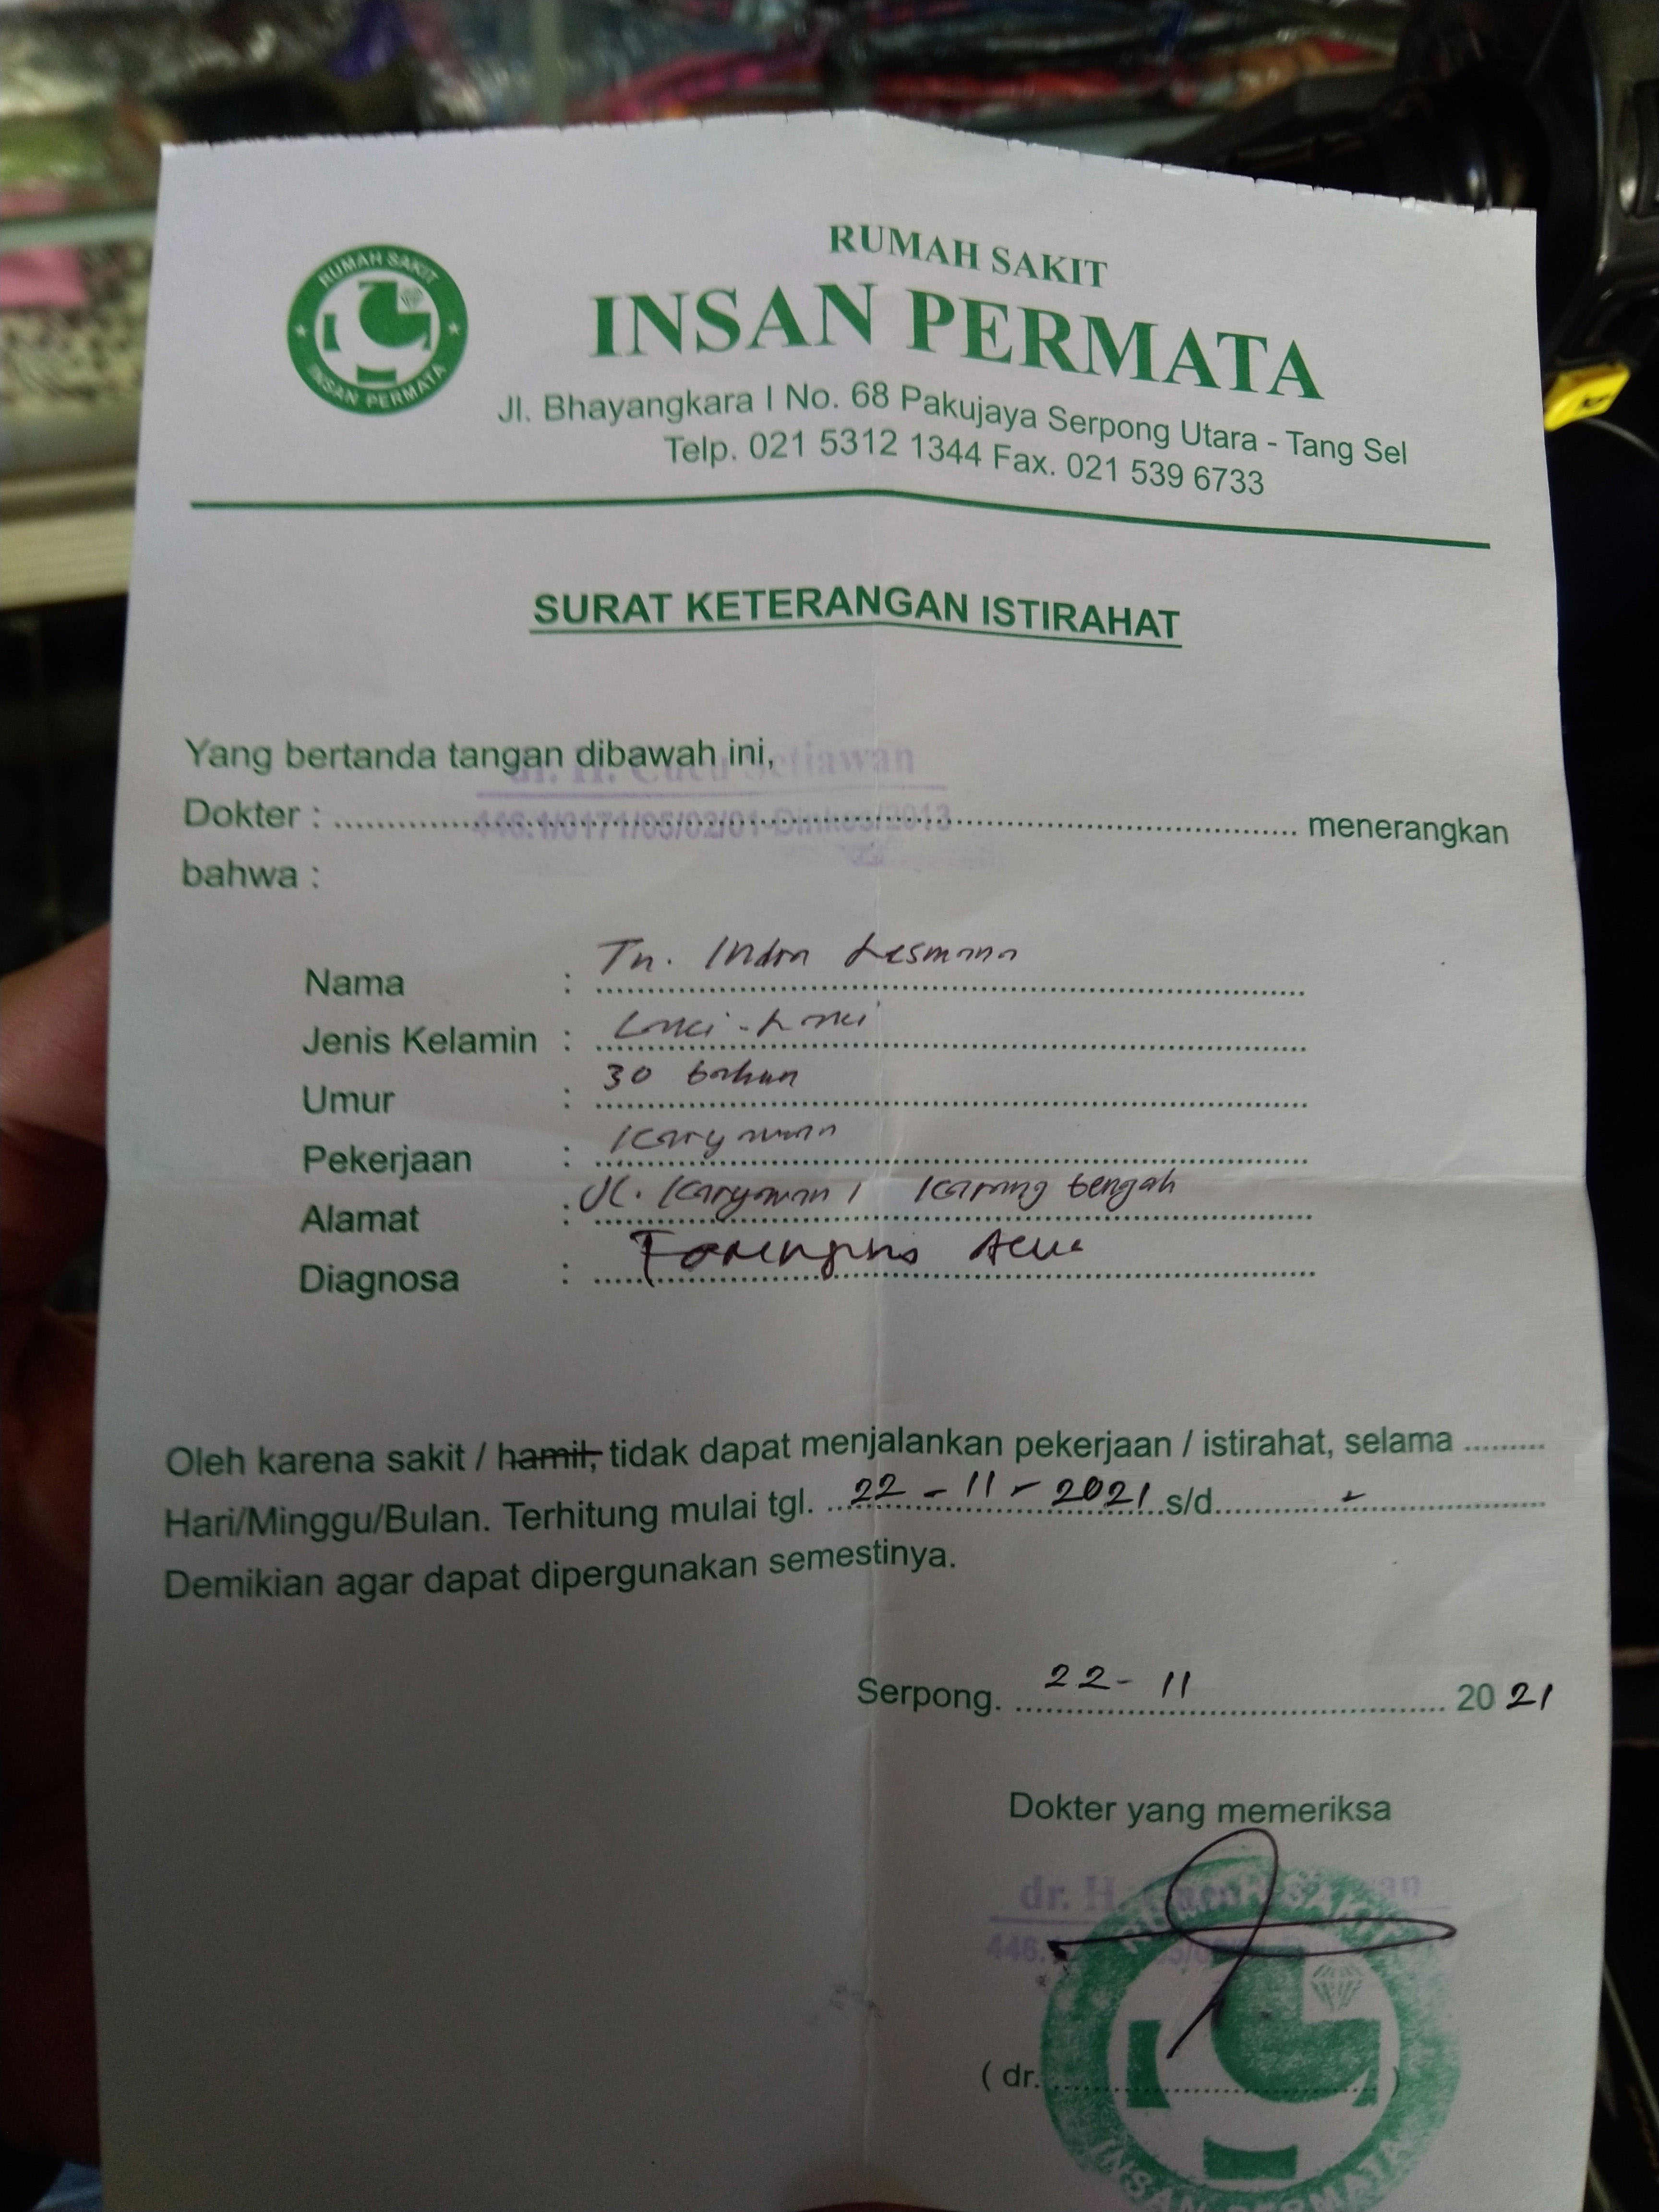 RUMAH SAKIT
INSAN PERMATA
RUMAH SAKIT
INSAN PERMATA
Jl. Bhayangkara I No. 68 Pakujaya Serpong Utara - Tang Sel
Telp. 021 5312 1344 Fax. 021 539 6733
SURAT KETERANGAN ISTIRAHAT
Yang bertanda tangan dibawah ini,
dr. H. Cucu Setiawan
Dokter : menerangkan
446.1/0171/05/02/01-Dinkes/2013
bahwa :
Nama : Tn. Indra Lesmana
Jenis Kelamin : Laki-Laki
Umur : 30 tahun
Pekerjaan : Karyawan
Alamat : Jl. Karyawan 1 Karang tengah
Diagnosa :
Oleh karena sakit / hamil, tidak dapat menjalankan pekerjaan / istirahat, selama .........
Hari/Minggu/Bulan. Terhitung mulai tgl. 22 - 11 - 2021 s/d
Demikian agar dapat dipergunakan semestinya.
Serpong. 22 - 11 2021
Dokter yang memeriksa
dr. H.
446.
RUMAH SAKIT
( dr. )
INSAN PERMATA